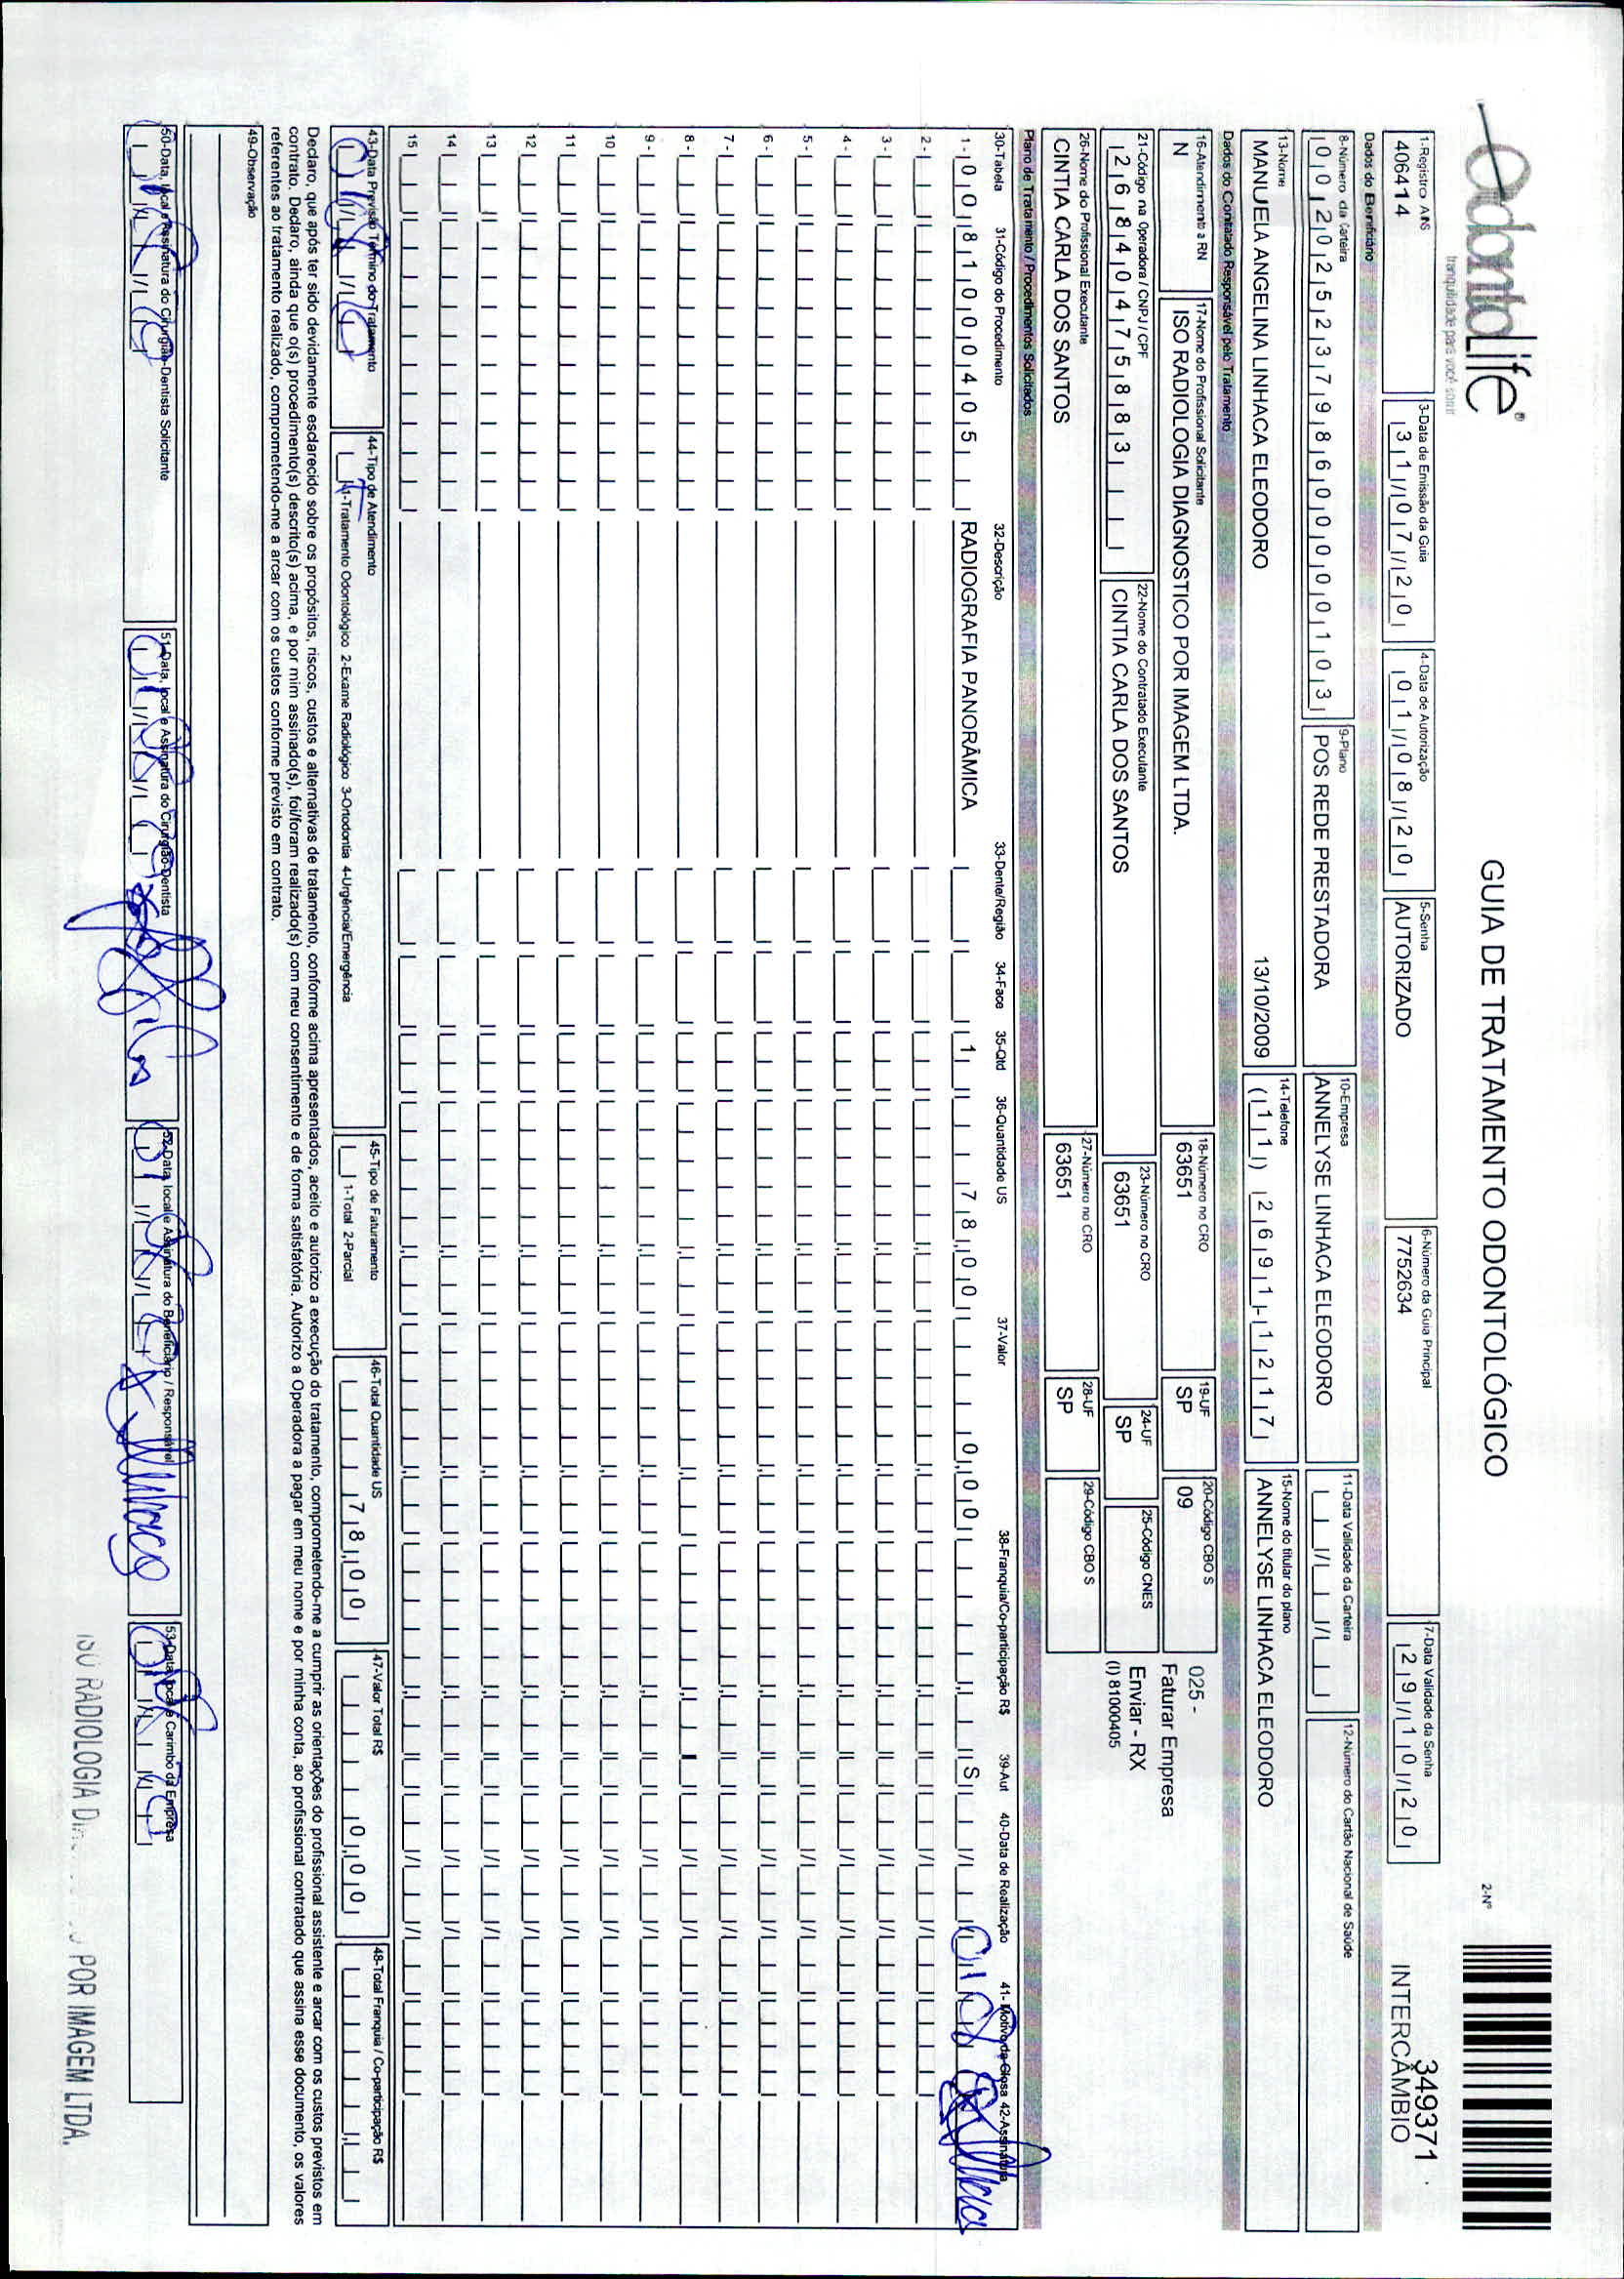 OdontoLife®
tranquilidade para você sorrir
GUIA DE TRATAMENTO ODONTOLÓGICO
2-Nº
349371
INTERCÂMBIO
1-Registro ANS 3-Data de Emissão da Guia 4-Data de Autorização 5-Senha 6-Número da Guia Principal 7-Data Validade da Senha
406414 31/07/20 01/08/20 AUTORIZADO 7752634 29/10/20
Dados do Beneficiário
8-Número da Carteira 9-Plano 10-Empresa 11-Data Validade da Carteira 12-Número do Cartão Nacional de Saúde
00202523798600000103 POS REDE PRESTADORA ANNELYSE LINHACA ELEODORO
13-Nome 14-Telefone 15-Nome do titular do plano
MANUELA ANGELINA LINHACA ELEODORO 13/10/2009 (11) 2691-1217 ANNELYSE LINHACA ELEODORO
Dados do Contratado Responsável pelo Tratamento
16-Atendimento a RN 17-Nome do Profissional Solicitante 18-Número no CRO 19-UF 20-Código CBO S
N ISO RADIOLOGIA DIAGNOSTICO POR IMAGEM LTDA. 63651 SP 09
025 -
Faturar Empresa
21-Código na Operadora / CNPJ / CPF 22-Nome do Contratado Executante 23-Número no CRO 24-UF 25-Código CNES
26840475883 CINTIA CARLA DOS SANTOS 63651 SP
Enviar - RX
(I) 81000405
26-Nome do Profissional Executante 27-Número no CRO 28-UF 29-Código CBO S
CINTIA CARLA DOS SANTOS 63651 SP
Plano de Tratamento / Procedimentos Solicitados
30-Tabela 31-Código do Procedimento 32-Descrição 33-Dente/Região 34-Face 35-Qtd 36-Quantidade US 37-Valor 38-Franquia/Co-participação R$ 39-Aut 40-Data de Realização 41-Motivo da Glosa 42-Assinatura
1- 00 81000405 RADIOGRAFIA PANORÂMICA 1 78,00 0,00 S
2-
3-
4-
5-
6-
7-
8-
9-
10
11
12
13
14
15
43-Data Previsão Término do Tratamento 44-Tipo de Atendimento 45-Tipo de Faturamento 46-Total Quantidade US 47-Valor Total R$ 48-Total Franquia / Co-participação R$
1-Tratamento Odontológico 2-Exame Radiológico 3-Ortodontia 4-Urgência/Emergência 1-Total 2-Parcial 78,00 0,00
Declaro, que após ter sido devidamente esclarecido sobre os propósitos, riscos, custos e alternativas de tratamento, conforme acima apresentados, aceito e autorizo a execução do tratamento, comprometendo-me a cumprir as orientações do profissional assistente e arcar com os custos previstos em
contrato. Declaro, ainda que o(s) procedimento(s) descrito(s) acima, e por mim assinado(s), foi/foram realizado(s) com meu consentimento e de forma satisfatória. Autorizo a Operadora a pagar em meu nome e por minha conta, ao profissional contratado que assina esse documento, os valores
referentes ao tratamento realizado, comprometendo-me a arcar com os custos conforme previsto em contrato.
49-Observação
50-Data, local e Assinatura do Cirurgião-Dentista Solicitante 51-Data, local e Assinatura do Cirurgião-Dentista 52-Data, local e Assinatura do Beneficiário / Responsável 53-Data, local e Carimbo da Empresa
ISO RADIOLOGIA POR IMAGEM LTDA.